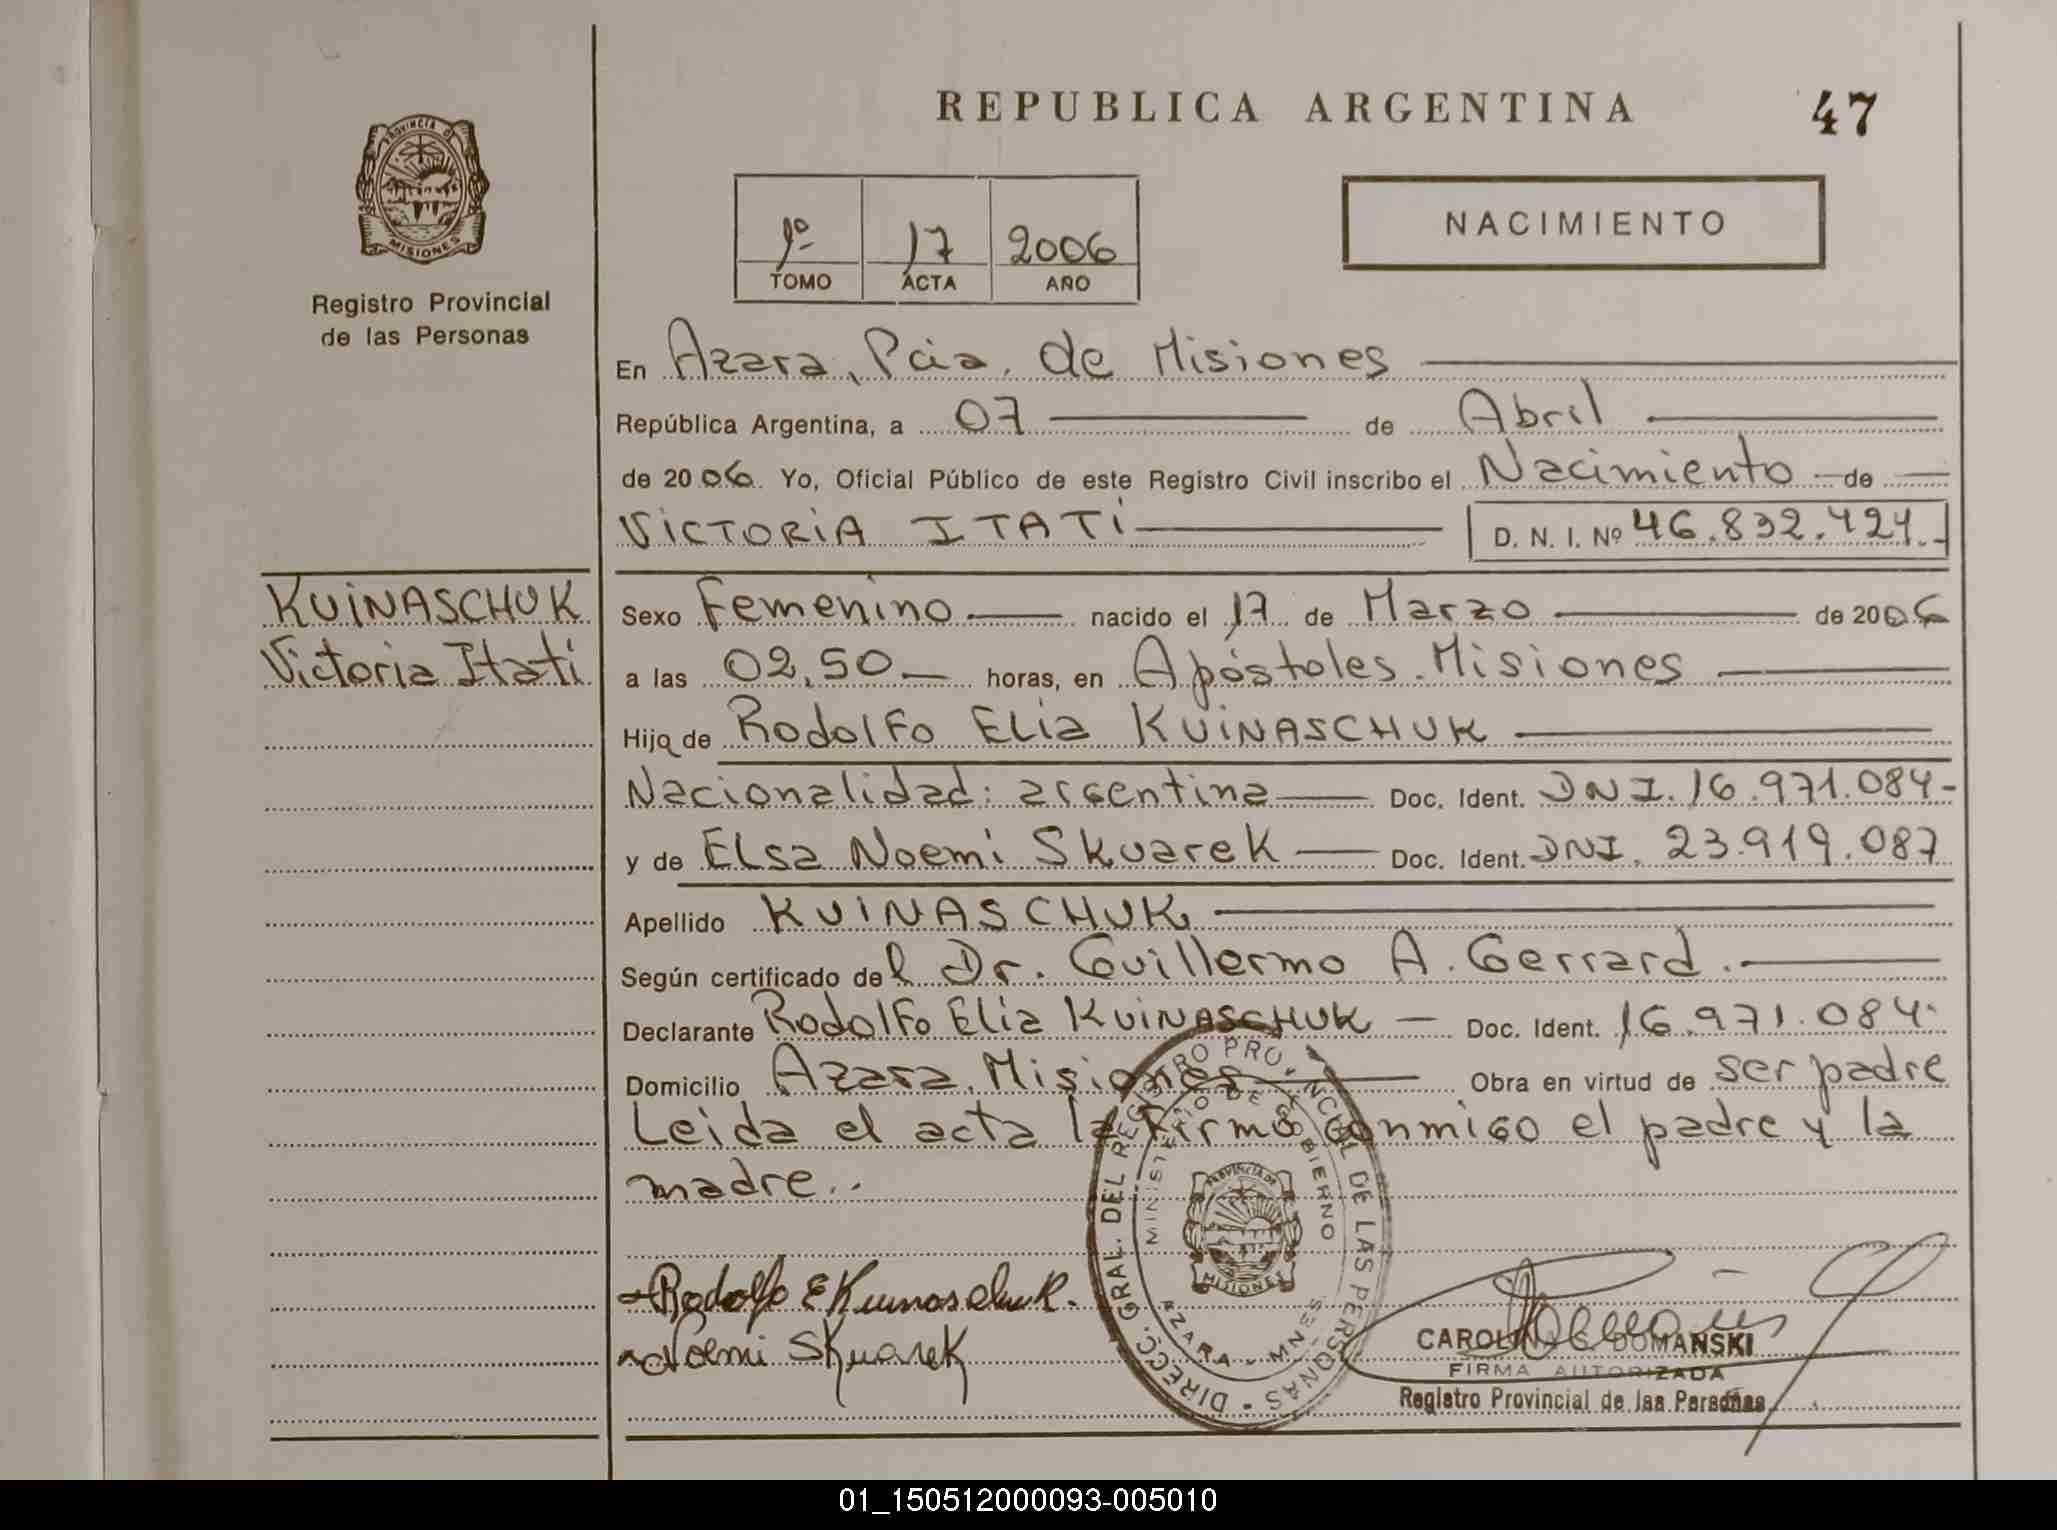 REPUBLICA ARGENTINA
47
PROVINCIA DE
MISIONES
Registro Provincial
de las Personas
1º
17
2006
TOMO
ACTA
AÑO
NACIMIENTO
En Azara, Pcia. de Misiones
República Argentina, a 07 de Abril
de 2006. Yo, Oficial Público de este Registro Civil inscribo el Nacimiento de
VICTORIA ITATI
D. N. I. Nº 46.832.424.-
KUINASCHUK
Victoria Itati
Sexo Femenino nacido el 17 de Marzo de 2006
a las 02,50 horas, en Apóstoles. Misiones
Hija de Rodolfo Elia KUINASCHUK
Nacionalidad: argentina Doc. Ident. DNI. 16.971.084-
y de Elsa Noemi Skuarek Doc. Ident. DNI. 23.919.087
Apellido KUINASCHUK
Según certificado del Dr. Guillermo A. Gerrard.
Declarante Rodolfo Elia KUINASCHUK Doc. Ident. 16.971.084.
Domicilio Azara, Misiones Obra en virtud de ser padre
Leida el acta la firmó conmigo el padre y la
madre..
Rodolfo E Kuinaschuk.
Noemi Skuarek
DIRECC. GRAL. DEL REGISTRO PROVINCIAL DE LAS PERSONAS
MINISTERIO DE GOBIERNO
PROVINCIA DE
MISIONES
AZARA - MNES.
CAROLINA G. DOMANSKI
FIRMA AUTORIZADA
Registro Provincial de las Personas
01_150512000093-005010